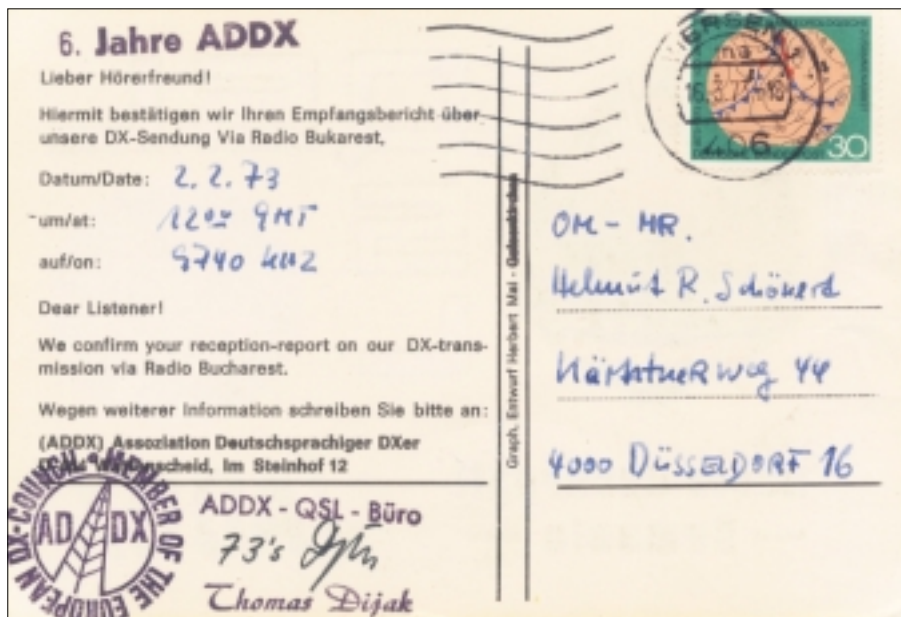 6. Jahre ADDX
Lieber Hörerfreund!
Hiermit bestätigen wir Ihren Empfangsbericht über
unsere DX-Sendung Via Radio Bukarest,
Datum/Date: 2.2.73
um/at: 1200 GMT
auf/on: 9740 kHz
Dear Listener!
We confirm your reception-report on our DX-trans-
mission via Radio Bucharest.
Wegen weiterer Information schreiben Sie bitte an:
(ADDX) Assoziation Deutschsprachiger DXer
Im Steinhof 12
EUROPEAN DX-COUNCIL • MEMBER OF THE
AD DX
ADDX - QSL - Büro
73's
Thomas Dijak
Graph. Entwurf Herbert Mai -
VIERSEN
406
30
OM - MR.
Helmut R. Schönert
4000 DÜSSELDORF 16